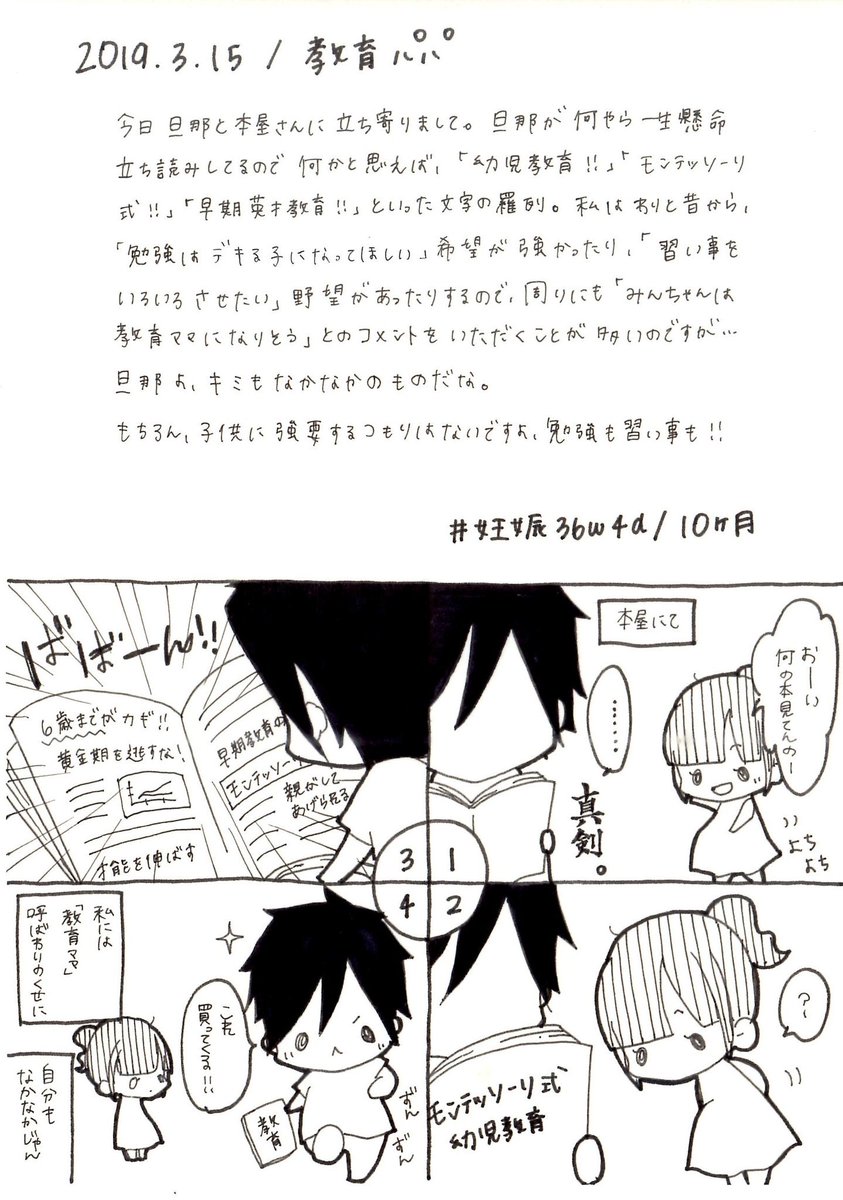 2019.3.15 / 教育パパ
今日 旦那と本屋さんに立ち寄りまして。旦那が何やら一生懸命
立ち読みしてるので 何かと思えば、「幼児教育!!」「モンテッソーリ
式!!」「早期英才教育!!」といった文字の羅列。私はわりと昔から、
「勉強はデキる子になってほしい」希望が強かったり、「習い事を
いろいろさせたい」野望があったりするので、周りにも「みんちゃんは
教育ママになりそう」とのコメントをいただくことが多いのですが…
旦那よ、キミもなかなかのものだな。
もちろん、子供に強要するつもりはないですよ、勉強も習い事も!!
#妊娠36w4d/10ヶ月
本屋にて
おーい
何の本見てんのー
………
真剣。
よち
よち
1
?
モンテッソーリ式
幼児教育
2
ばばーん!!
6歳までがカギ!!
黄金期を逃すな!
才能を伸ばす
早期教育の
モンテッソーリ
親がして
あげられる
3
これ
買ってくる!!
教育
ずん
ずん
私には
「教育ママ」
呼ばわりのくせに
自分も
なかなかじゃん
4